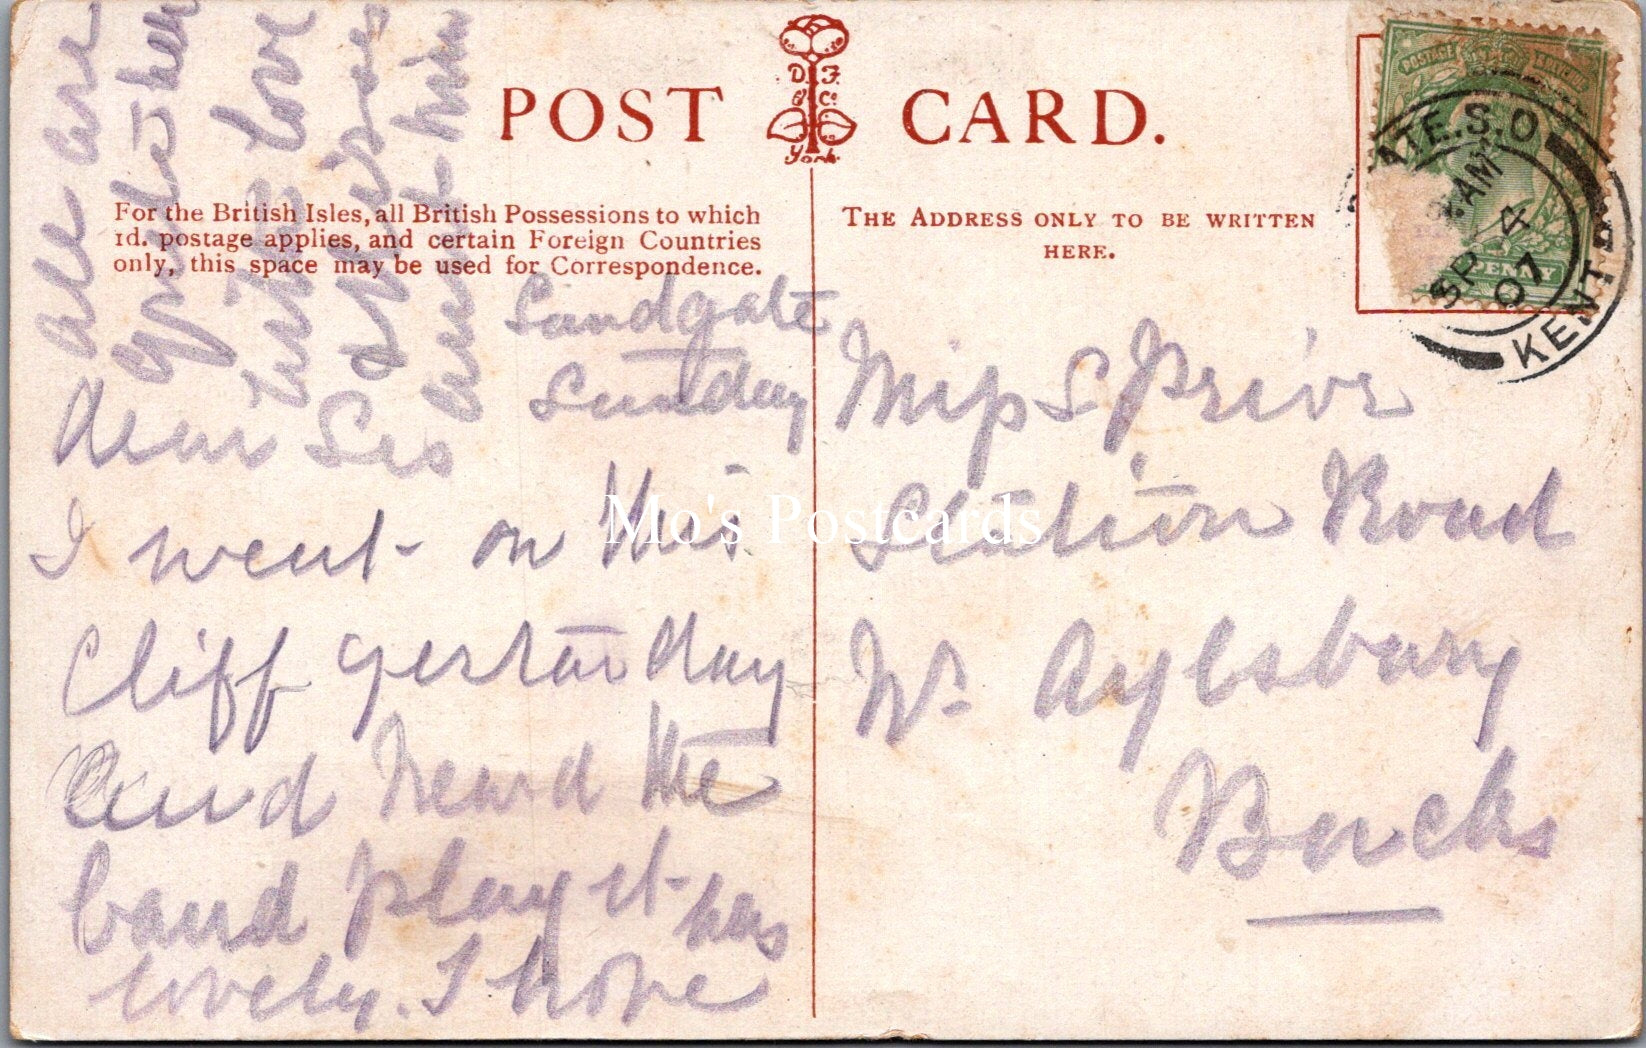 POST CARD.
D. F.
& Co.
York.
For the British Isles, all British Possessions to which
1d. postage applies, and certain Foreign Countries
only, this space may be used for Correspondence.
THE ADDRESS ONLY TO BE WRITTEN
HERE.
POSTAGE REVENUE
PENNY
ATE.S.O
AM
SP 4
07
KENT
Sandgate
Sunday
Dear Sis
I went on this
Cliff yesterday
and heard the
band play it was
lovely. I hope
all are
quite well
with love
Miss S Prior
Station Road
Nr Aylsbury
Bucks
Mo's Postcards